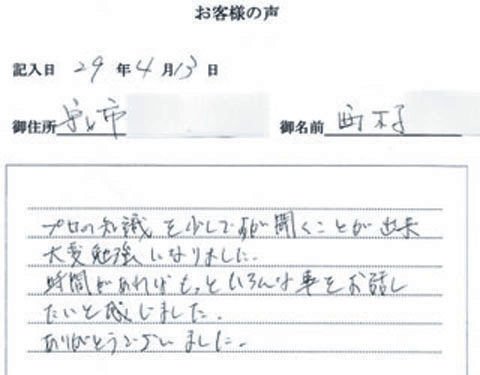 お客様の声
記入日 29 年 4 月 13 日
御住所 市 御名前 西村
プロの知識を少しですが聞くことが出来
大変勉強になりました。
時間があればもっといろんな事をお話し
たいと感じました。
ありがとうございました。